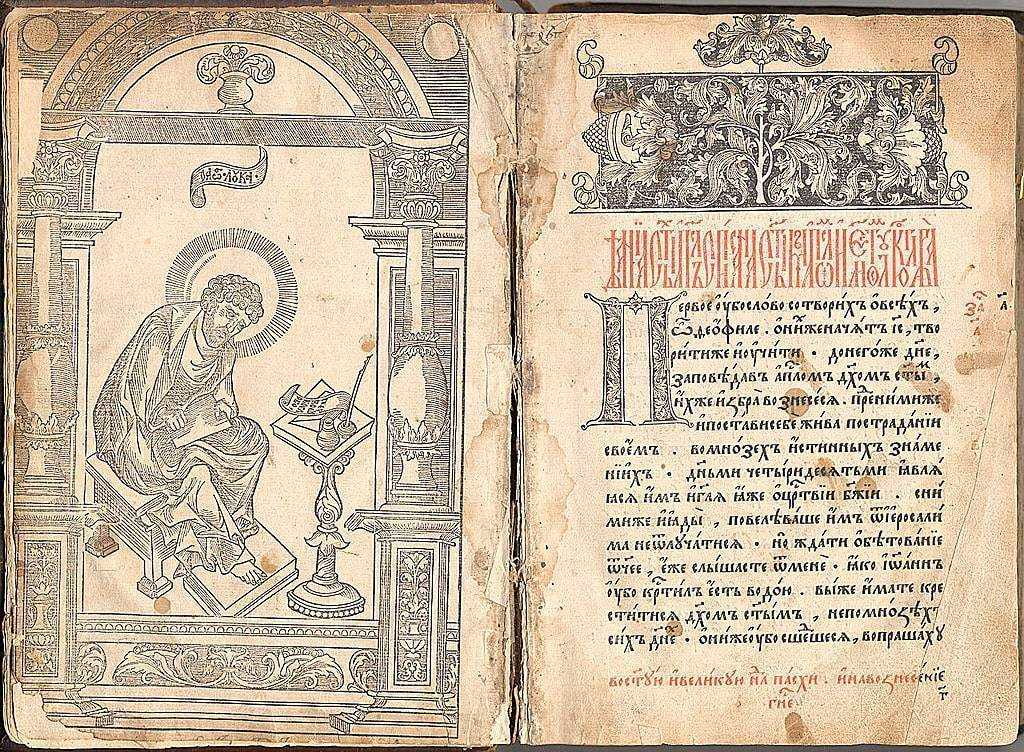 Первое оубо слово сотворихъ ѡ всѣхъ,
ѽ Ѳеѡфиле. ѡ нихже начатъ І҃с, тво
рити же и оучити. до негоже дн҃е,
заповѣдавъ ап҃лом дх҃ом ст҃ым,
ихже избра вознесеся. пред ними же
и постави себе жива по страданїи
своем. во мнозех истинных знаме
нїих. дньми четыридесятьми явля
яся им, и г҃ля яже о ц҃рствїи б҃жїи. с ни
миже и яды, повелѣваше им ѿ Іеросали
ма не ѿлучатися. но ждати обѣтованїе
ѿч҃ее, еже слышасте ѿ мене. яко Іѡаннъ
оубо кр҃тилъ есть водою. вы же имате кре
ститися дх҃ом ст҃ым, не по мнозѣх
сих дн҃е. они же оубо сшедшеся, вопрашаху